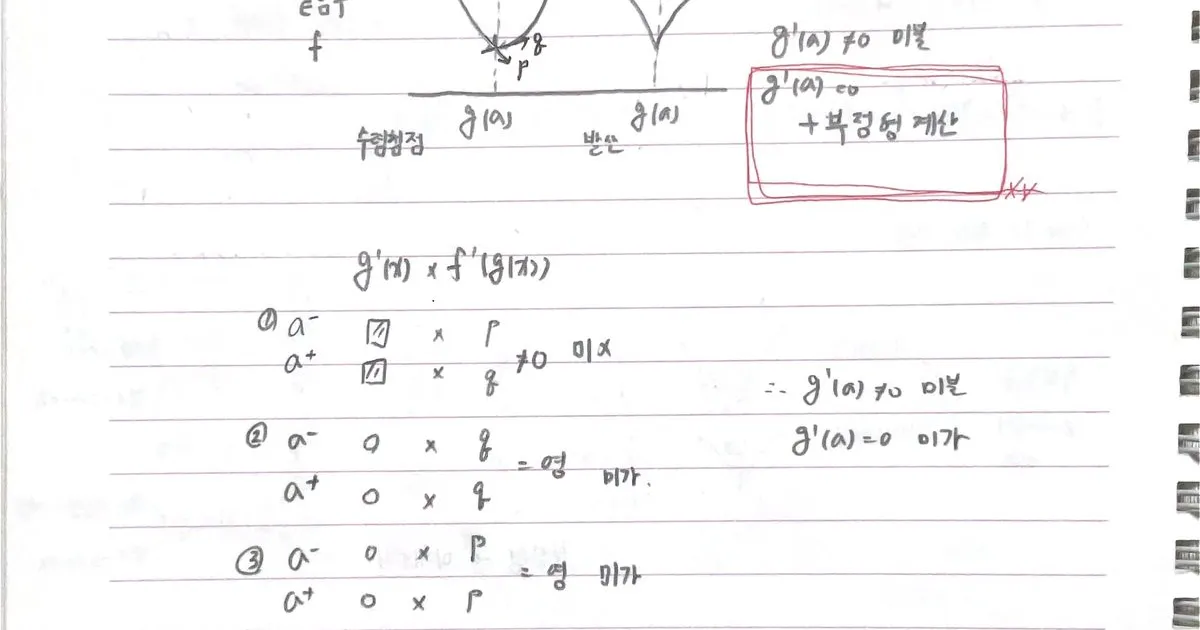 f
q
p
g(a) g(a)
수렴첨점 발산
g'(a) ≠0 미불
g'(a) =0
+ 부정형 계산
g'(x) × f'(g(x))
① a⁻ × p
a⁺ × q ≠0 미x
∴ g'(a) ≠0 미불
g'(a) =0 미가
② a⁻ 0 × q
a⁺ 0 × q = 영 미가.
③ a⁻ 0 × p
a⁺ 0 × p = 영 미가